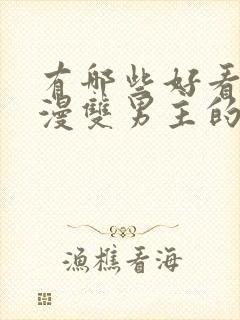 有哪些好看
漫雙男主的
漁樵看海